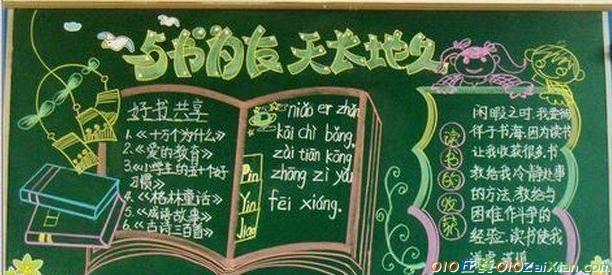 与书为友 天长地久
好书共享
1.《十万个为什么》
2.《爱的教育》
3.《小学生的五十个好
习惯》
4.《格林童话》
5.《成语故事》
6.《古诗三百首》
Pin
Yin
Jiao
niǎo er zhǎn
kāi chì bǎng,
zài tiān kōng
zhōng zì yóu
fēi xiáng.
读书的收获
闲暇之时,我爱徜
徉于书海,因为读书
让我收获很多.书
教给我冷静处事
的方法,教给与
困难作斗争的
经验.读书使我
010在线 010ZaiXian.com